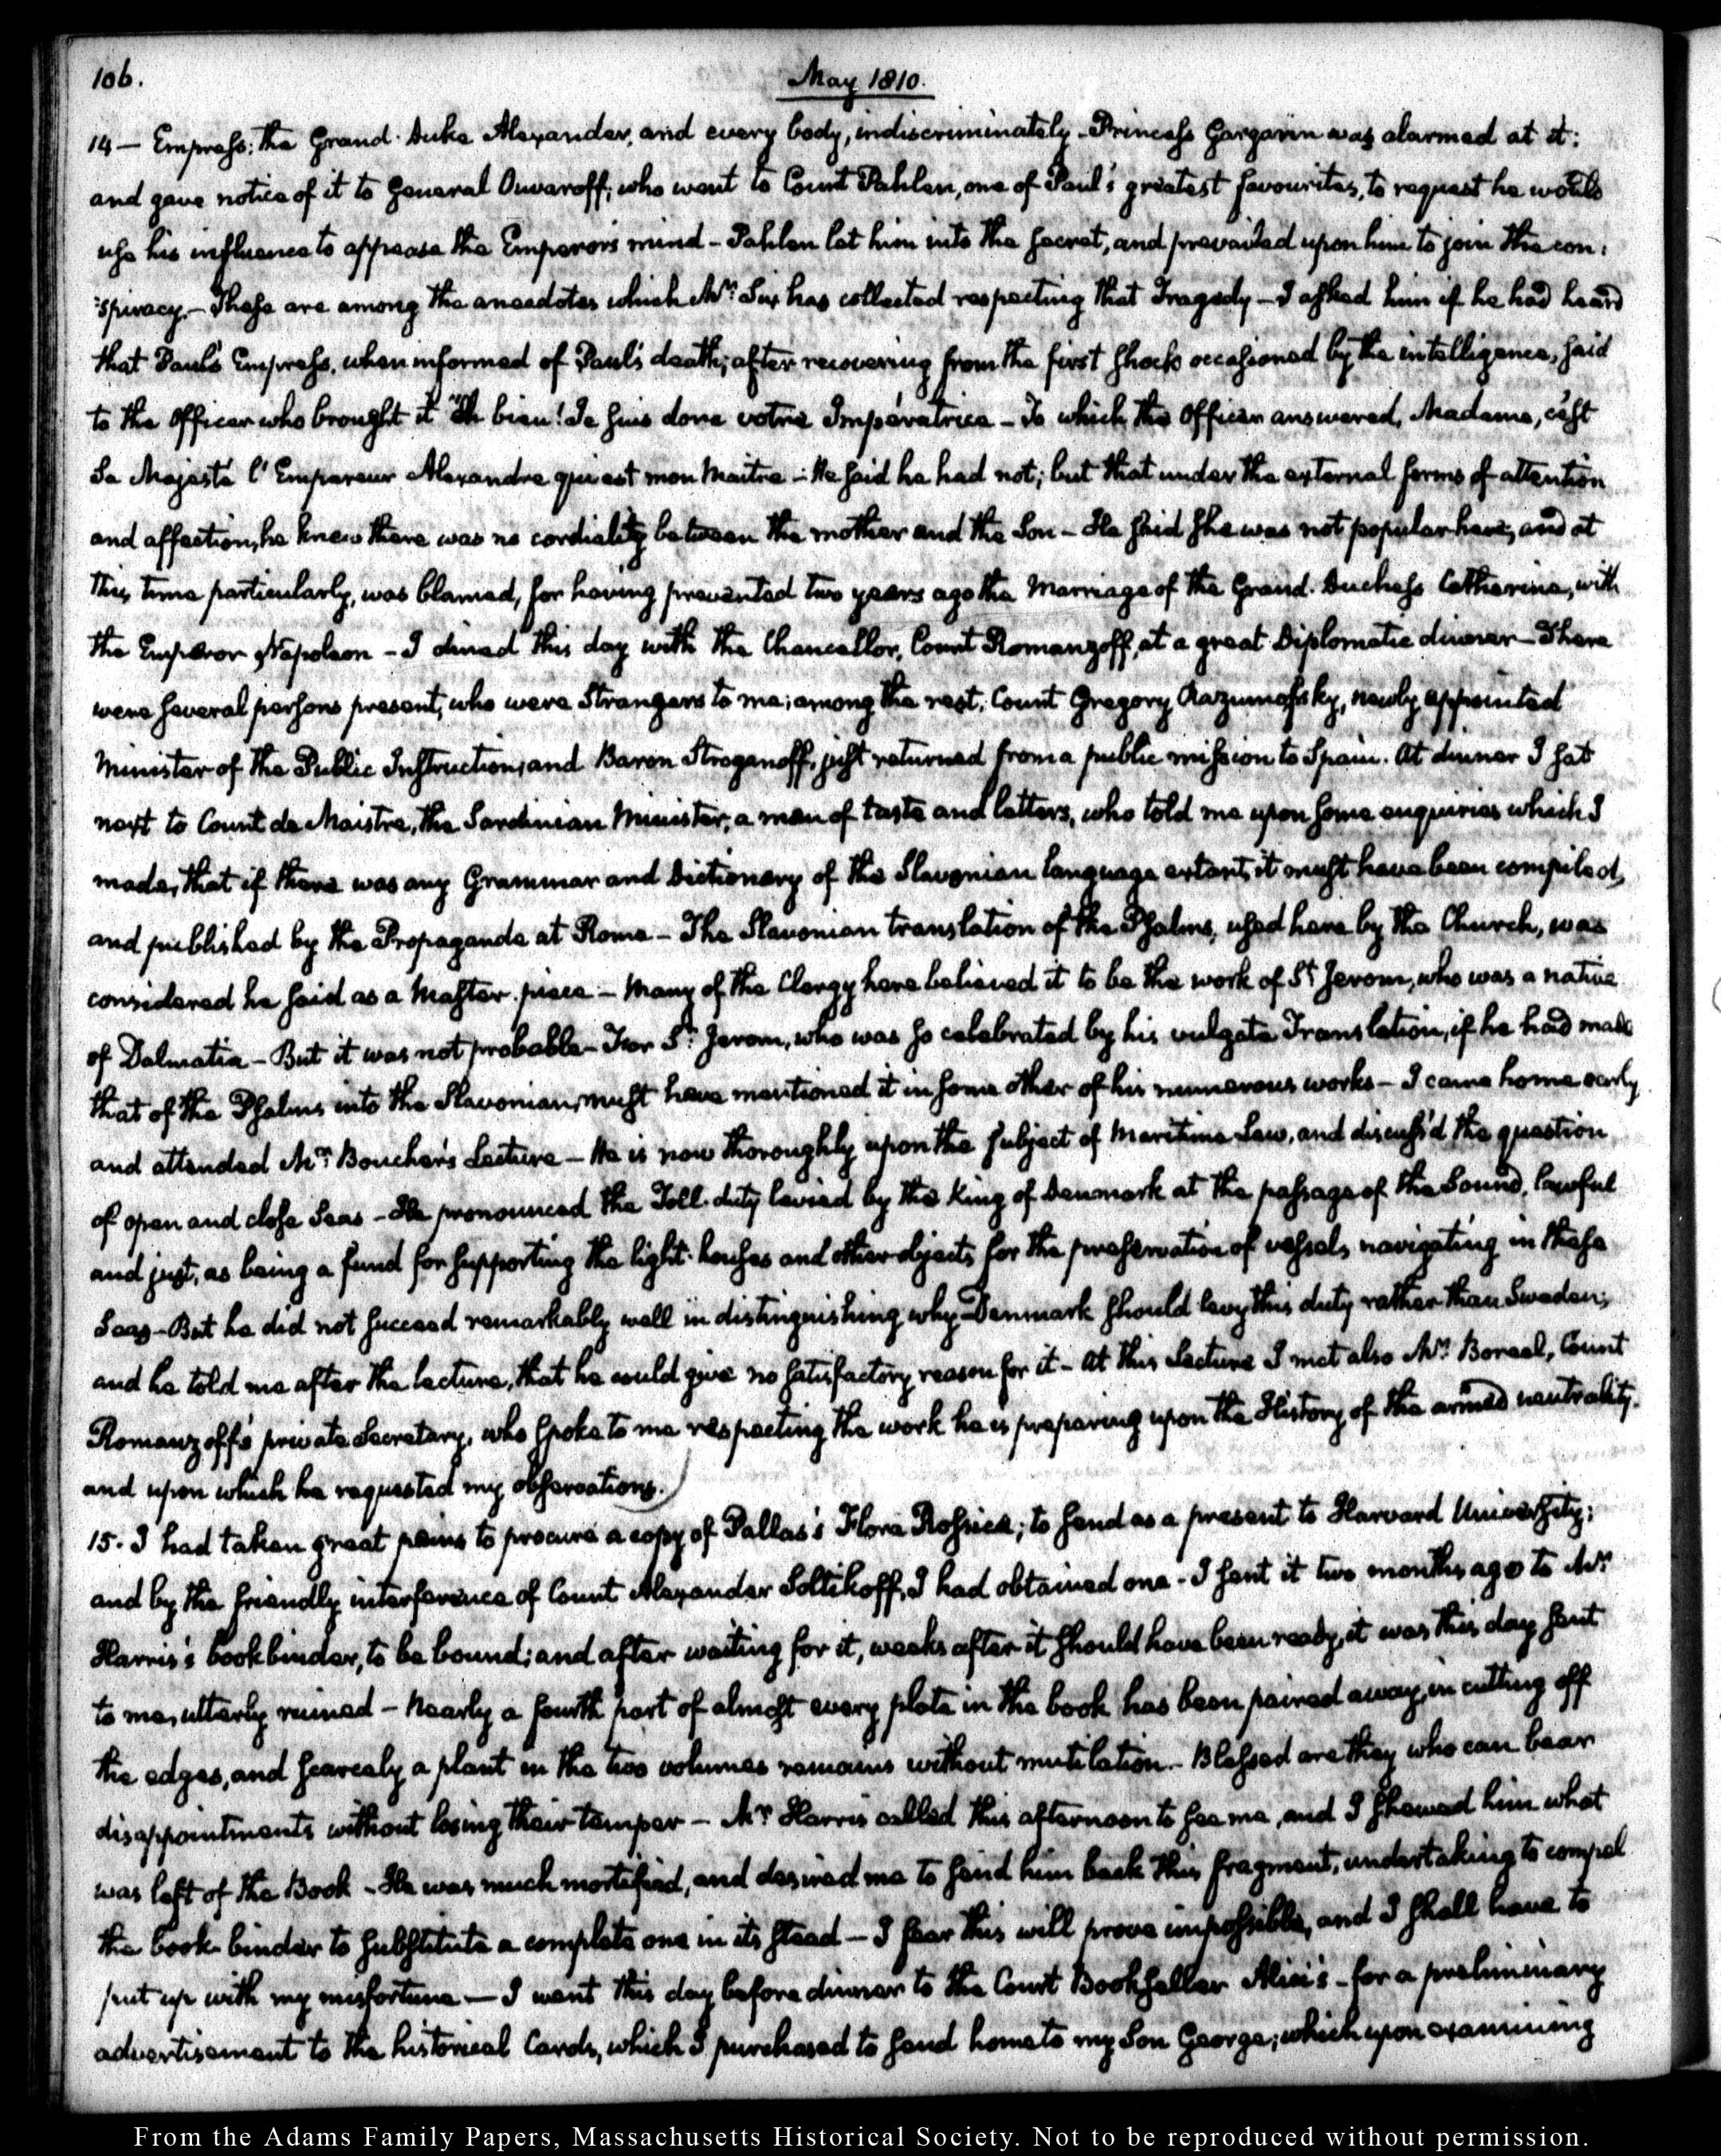 106.
May 1810.
14 — Empress: the Grand-Duke Alexander, and every body, indiscriminately - Princess Gargarin was alarmed at it:
and gave notice of it to General Ouwaroff, who went to Count Pahlen, one of Paul's greatest favourites, to request he would
use his influence to appease the Emperor's mind - Pahlen let him into the secret, and prevailed upon him to join the con:
:spiracy. - These are among the anecdotes which Mr. Six has collected respecting that Tragedy - I asked him if he had heard
that Paul's Empress, when informed of Paul's death, after recovering from the first shock occasioned by the intelligence, said
to the Officer who brought it "Eh bien! Je suis donc votre Impératrice - To which the Officer answered, Madame, c'est
Sa Majesté l'Empereur Alexandre qui est mon Maitre - He said he had not; but that under the external forms of attention
and affection, he knew there was no cordiality between the mother and the Son - He said she was not popular here, and at
this time particularly, was blamed, for having prevented two years ago the Marriage of the Grand-Duchess Catherine, with
the Emperor Napoleon - I dined this day with the Chancellor, Count Romanzoff, at a great Diplomatic dinner - There
were several persons present, who were Strangers to me; among the rest, Count Gregory Razumofsky, newly appointed
Minister of the Public Instruction, and Baron Stroganoff, just returned from a public mission to Spain. At dinner I sat
next to Count de Maistre, the Sardinian Minister, a man of taste and letters, who told me upon some enquiries which I
made, that if there was any Grammar and Dictionary of the Slavonian language extant, it must have been compiled,
and published by the Propaganda at Rome - The Slavonian translation of the Psalms, used here by the Church, was
considered he said as a Master-piece - Many of the Clergy here believed it to be the work of St. Jerom, who was a native
of Dalmatia - But it was not probable - For St. Jerom, who was so celebrated by his vulgate Translation, if he had made
that of the Psalms into the Slavonian, must have mentioned it in some other of his numerous works - I came home early
and attended Mr. Boucher's Lecture - He is now thoroughly upon the subject of Maritime Law, and discuss'd the question
of open and close Seas - He pronounced the Toll-duty levied by the King of Denmark at the passage of the Sound, lawful
and just, as being a fund for supporting the light-houses and other objects for the preservation of vessels navigating in these
Seas - But he did not succeed remarkably well in distinguishing why Denmark should levy this duty rather than Sweden;
and he told me after the lecture, that he could give no satisfactory reason for it - At this Lecture I met also Mr. Boreal, Count
Romanzoff's private Secretary, who spoke to me respecting the work he is preparing upon the History of the armed neutrality.
and upon which he requested my observations.
15. I had taken great pains to procure a copy of Pallas's Flora Rossica; to send as a present to Harvard University:
and by the friendly interference of Count Alexander Soltikoff, I had obtained one - I sent it two months ago to Mr.
Harris's bookbinder, to be bound; and after waiting for it, weeks after it should have been ready, it was this day sent
to me, utterly ruined - Nearly a fourth part of almost every plate in the book has been paired away, in cutting off
the edges, and scarcely a plant in the two volumes remains without mutilation. - Blessed are they who can bear
disappointments without losing their temper - Mr. Harris called this afternoon to see me, and I shewed him what
was left of the Book - He was much mortified, and desired me to send him back this fragment, undertaking to compel
the book-binder to substitute a complete one in its stead - I fear this will prove impossible, and I shall have to
put up with my misfortune — I went this day before dinner to the Court Bookseller Alici's - for a preliminary
advertisement to the historical Cards, which I purchased to send home to my Son George; which upon examining
From the Adams Family Papers, Massachusetts Historical Society. Not to be reproduced without permission.